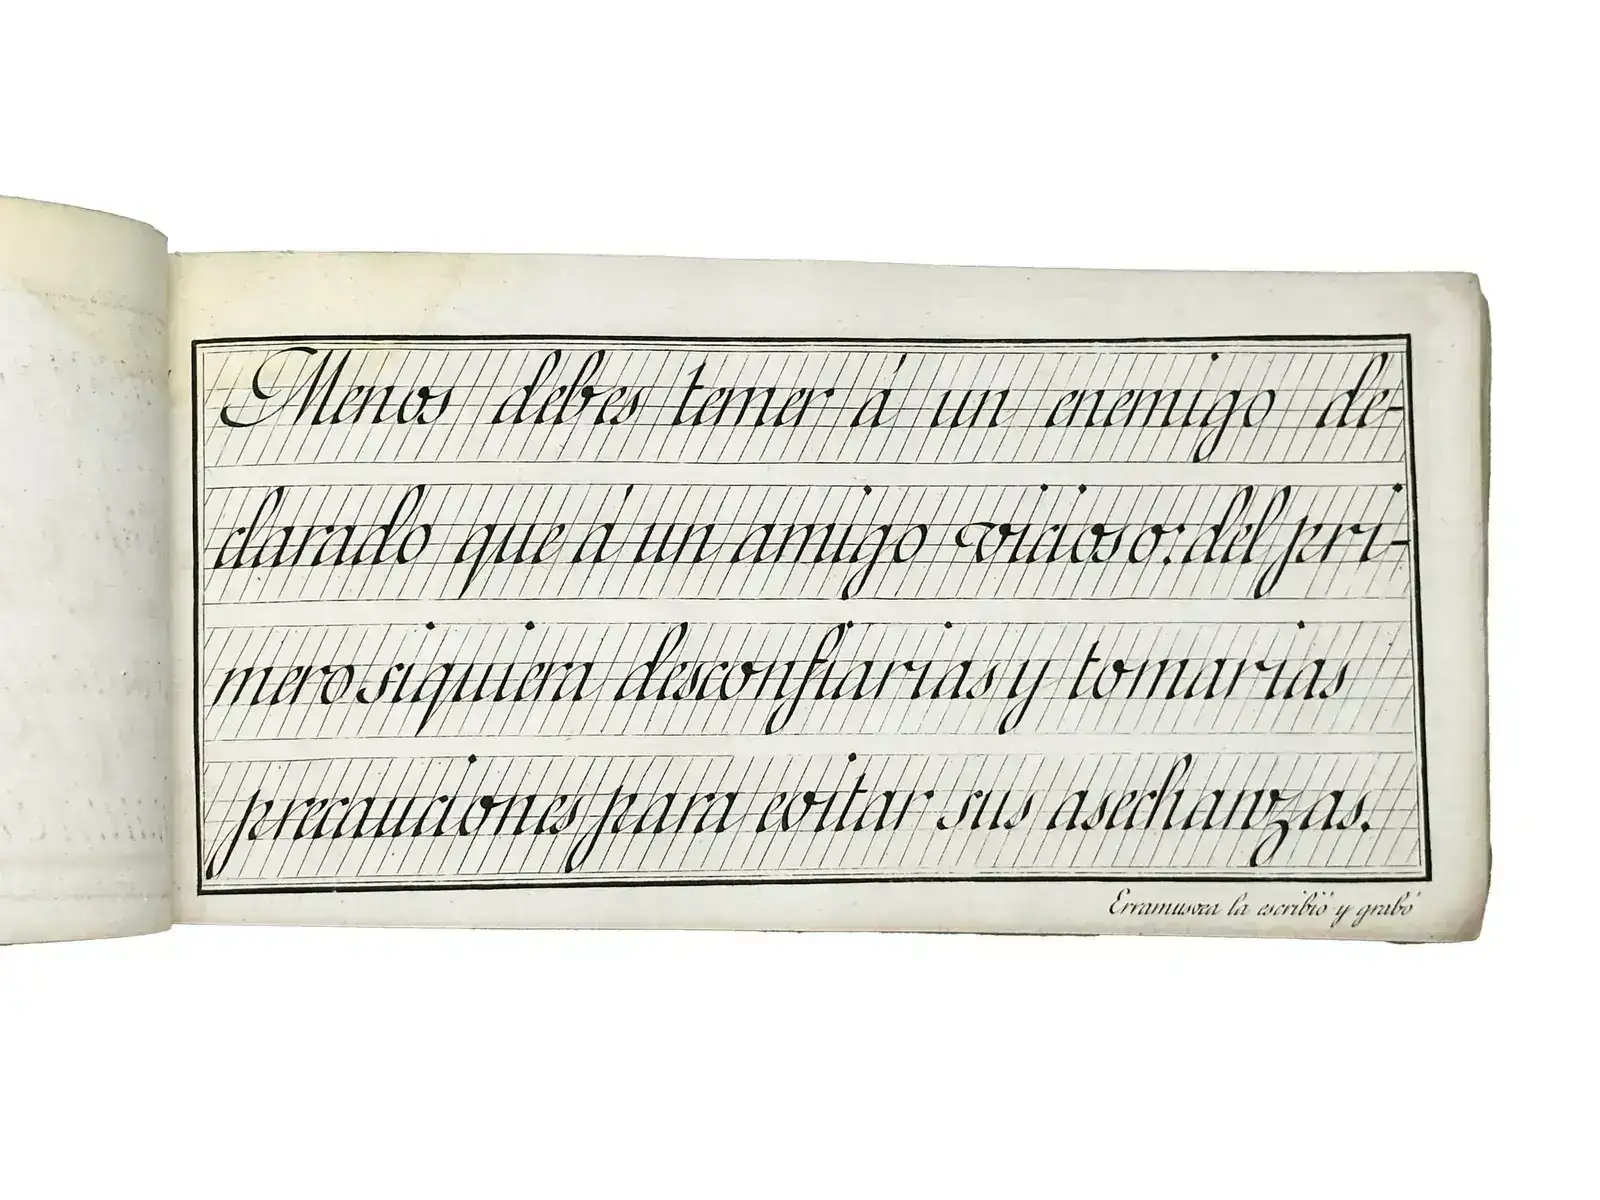 Menos debes temer á un enemigo de-
clarado que á un amigo vicioso: del pri-
mero siquiera desconfiarias y tomarias
precauciones para evitar sus asechanzas.
Erramuzvea la escribió y grabó